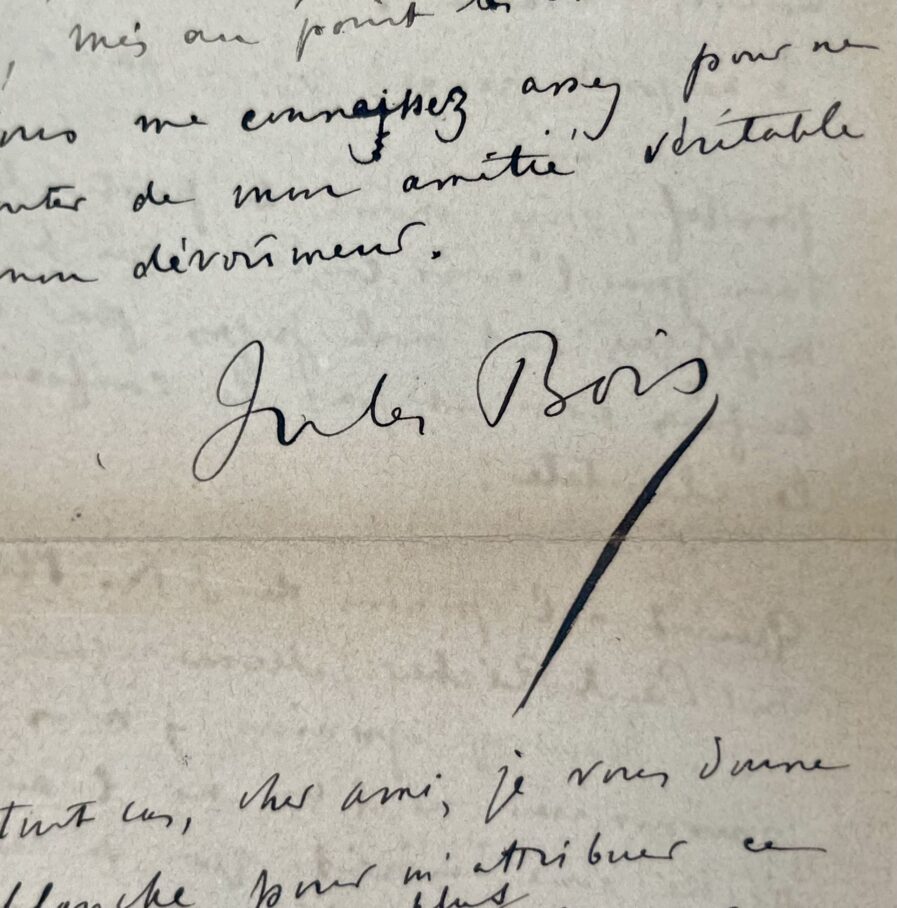 , mis au point les
me connaissez assez pour ne
de mon amitié véritable
mon dévoûment.
Jules Bois
tout cas, cher ami, je vous donne
blanche pour m'attribuer ce
plus